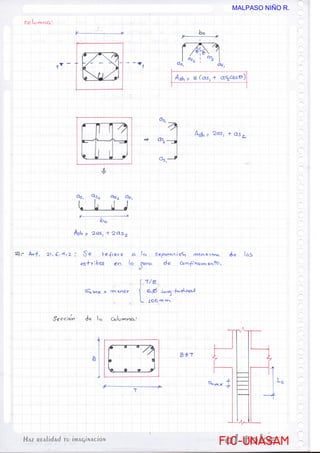 MALPASO NIÑO R.
columna:
bc
as₁ as₂ as₂ as₁
Ash = 2 (as₁ + as₂cosθ)
as₁
as₂
as₁
Ash = 2as₁ + as₂
as₁ as₂ as₂ as₁
bc
Ash = 2as₁ + 2as₂
Art. 21.6.4.2 : Se refiere a la separación máxima de los
estribos en la zona de confinamiento.
Smax = menor
T/2
6db longitudinal
100mm
Sección de la columna:
B
T
B≥T
Smax
Lo
Haz realidad tu imaginación
FIC-UNASAM